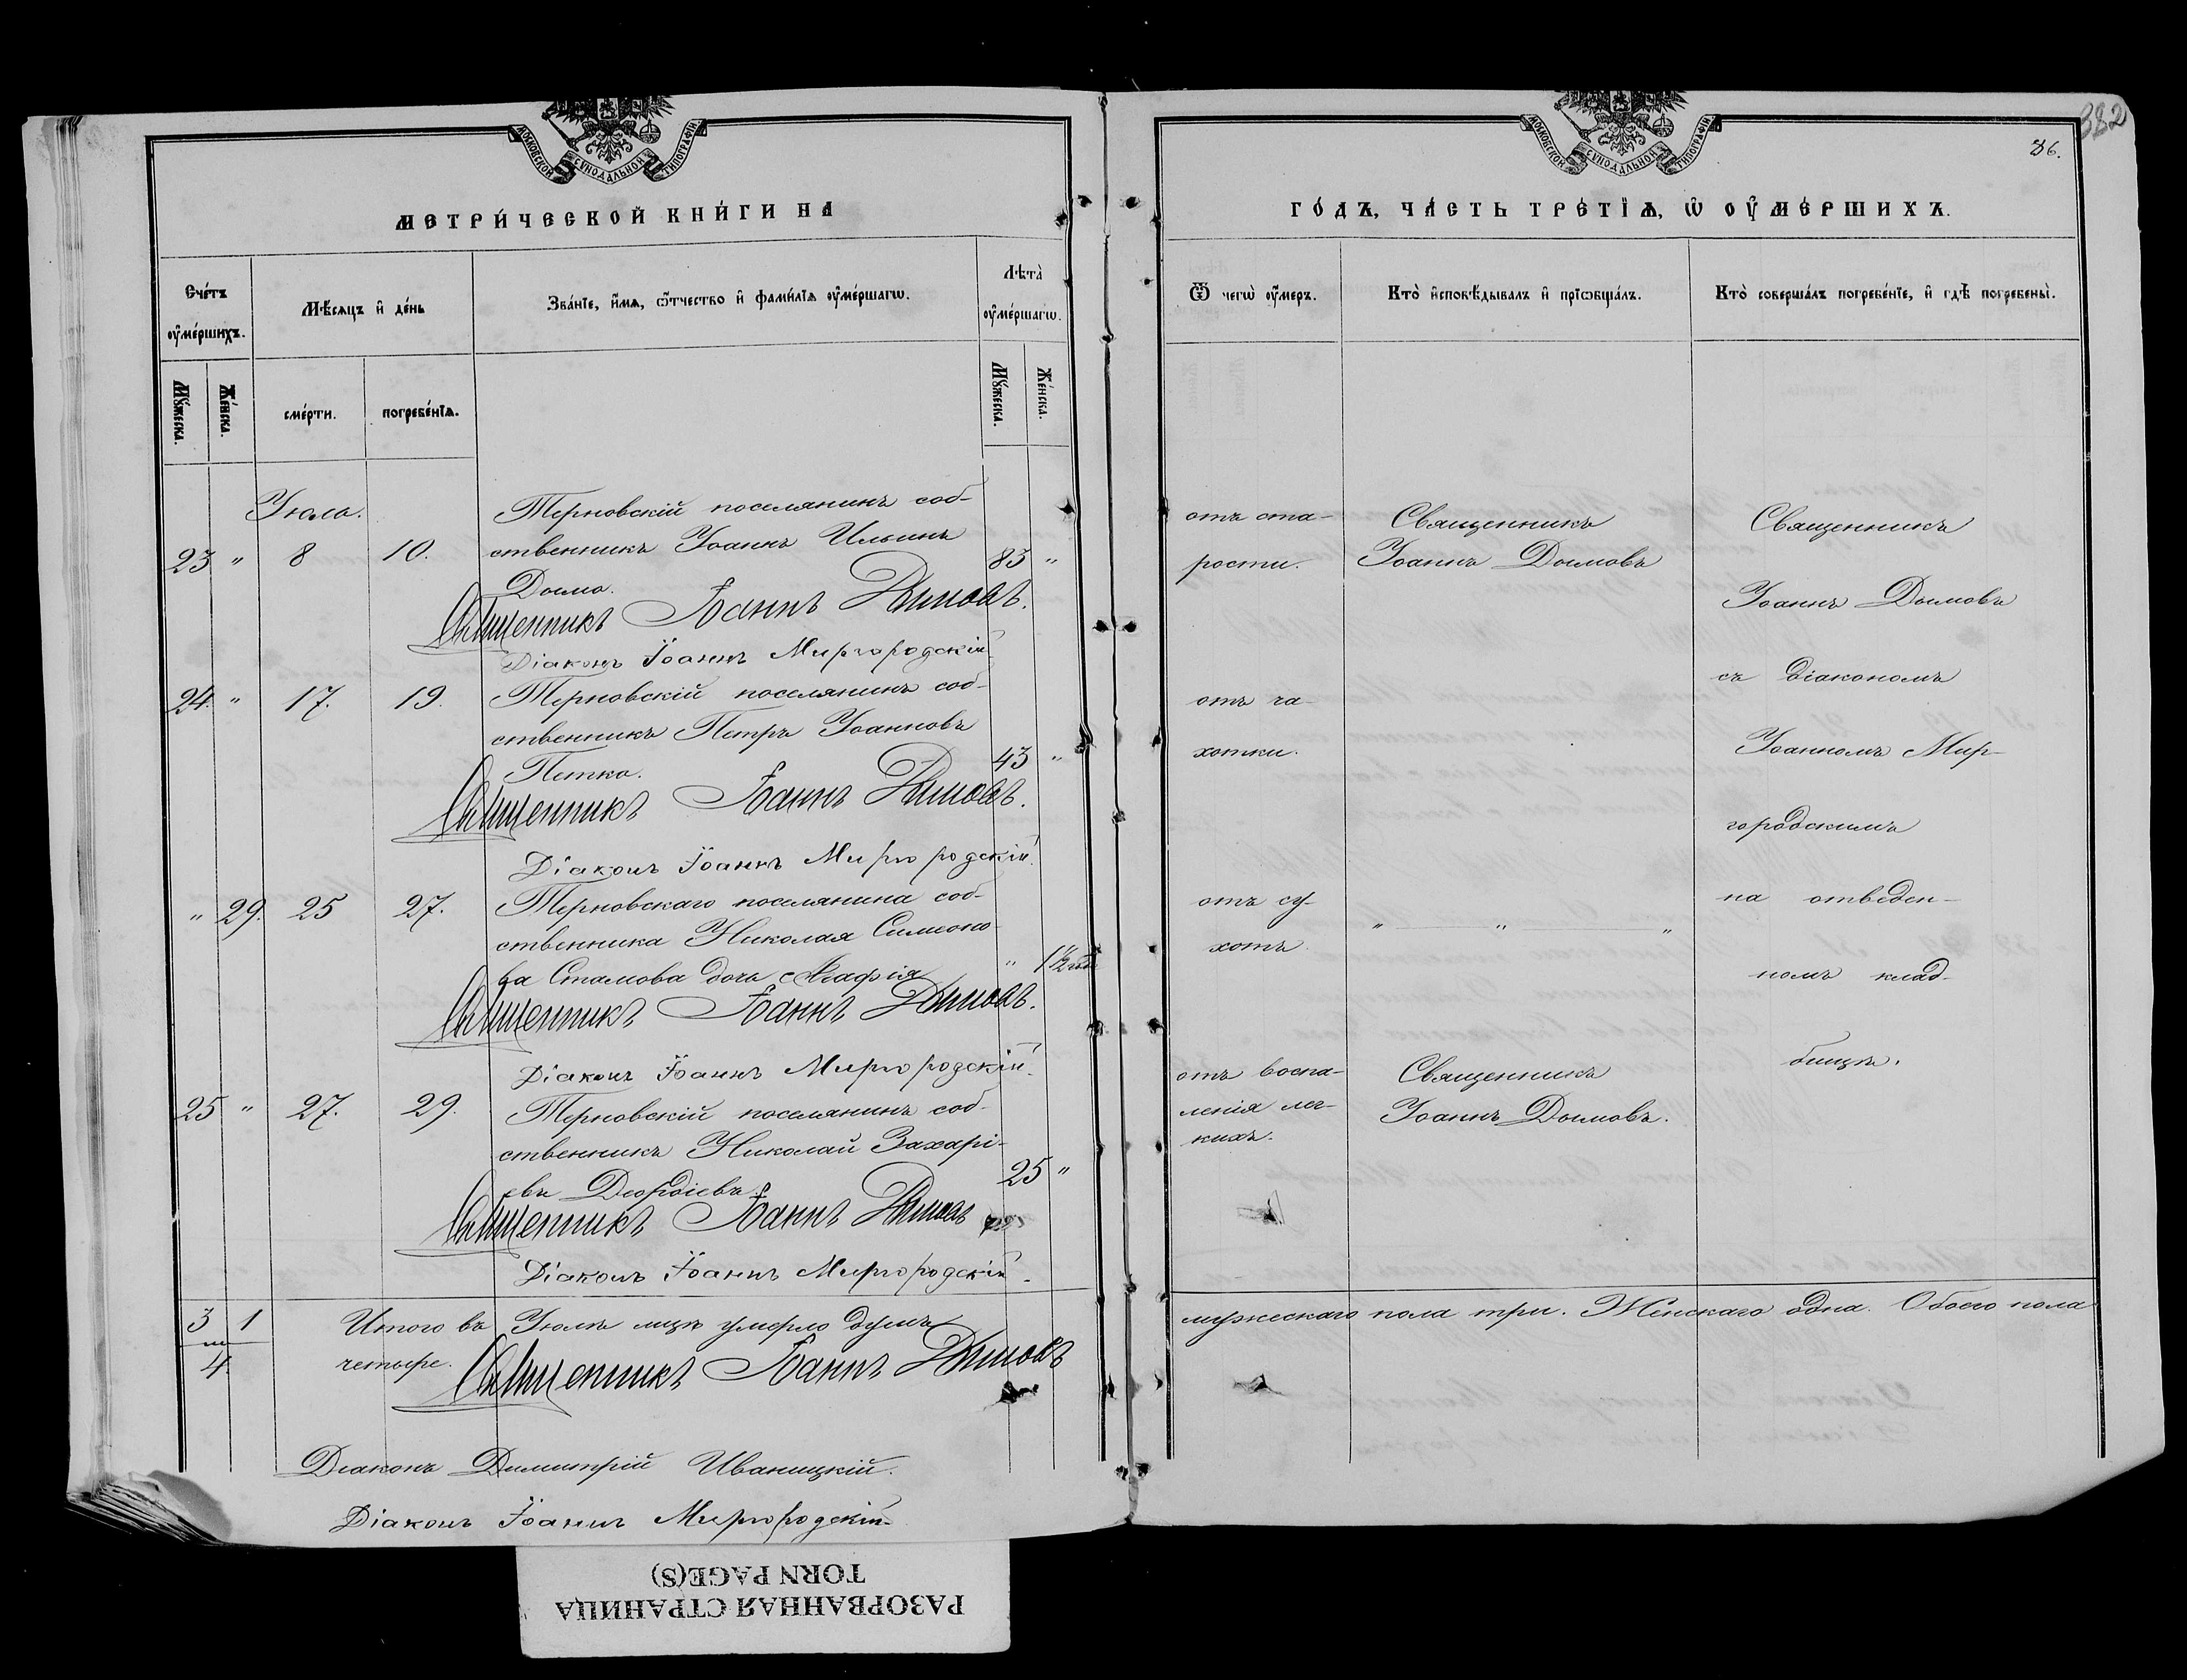 МОСКОВСКОЙ СУНОДАЛЬНОЙ ТИПОГРАФІИ
МЕТРИ́ЧЕСКОЙ КНИ́ГИ НА
Сче́тъ ᲂу҆ме́ршихъ.
Мѣ́сѧцъ и҆ де́нь
Зва́нїе, и҆́мѧ, ѻ҆́тчество и҆ фами́лїѧ ᲂу҆ме́ршагѡ.
Лѣ́та ᲂу҆ме́ршагѡ.
Мꙋ́жеска.
Же́нска.
сме́рти.
погребе́нїѧ.
Мꙋ́жеска.
Же́нска.
Іюль.
Терновскій поселянинъ соб-
23 " 8 10. ственникъ Іоаннъ Ильинъ 83 "
Дымо.
Священникъ Іоаннъ Дымовъ.
Діаконъ Іоаннъ Миргородскій
24. " 17. 19. Терновскій поселянинъ соб-
ственникъ Петръ Іоанновъ
Петко. 43 "
Священникъ Іоаннъ Дымовъ.
Діаконъ Іоаннъ Миргородскій
" 29. 25 27. Терновскаго поселянина соб-
ственника Николая Симеоно-
ва Стамова дочь Агафія " 1½ года
Священникъ Іоаннъ Дымовъ.
Діаконъ Іоаннъ Миргородскій.
25 " 27. 29. Терновскій поселянинъ соб-
ственникъ Николай Захарі-
евъ Деордіевъ 25 "
Священникъ Іоаннъ Дымовъ
Діаконъ Іоаннъ Миргородскій.
3 1 Итого въ Іюлѣ мцѣ умерло душъ
4. четыре. Священникъ Іоаннъ Дымовъ
Діаконъ Димитрій Иваницкій.
Діаконъ Іоаннъ Миргородскій
382
86.
МОСКОВСКОЙ СУНОДАЛЬНОЙ ТИПОГРАФІИ
ГО́ДЪ, ЧА́СТЬ ТРЕ́ТІѦ, Ѡ ОУ҆МЕ́РШИХЪ.
Ѿ чегѡ̀ ᲂу҆́меръ.
Кто̀ и҆сповѣ́дывалъ и҆ прїѡбща́лъ.
Кто̀ соверша́лъ погребе́нїе, и҆ гдѣ̀ погребены̀.
отъ ста-
рости.
Священникъ
Іоаннъ Дымовъ
Священникъ
Іоаннъ Дымовъ
съ діакономъ
Іоанномъ Мир-
городскимъ
на отведен-
номъ клад-
бищѣ.
отъ ча-
хотки.
отъ су-
хотъ.
" " "
отъ воспа-
ленія лег-
кихъ.
Священникъ
Іоаннъ Дымовъ.
мужескаго пола три. Женскаго одна. Обоего пола
РАЗОРВАННАЯ СТРАНИЦА
TORN PAGE(S)